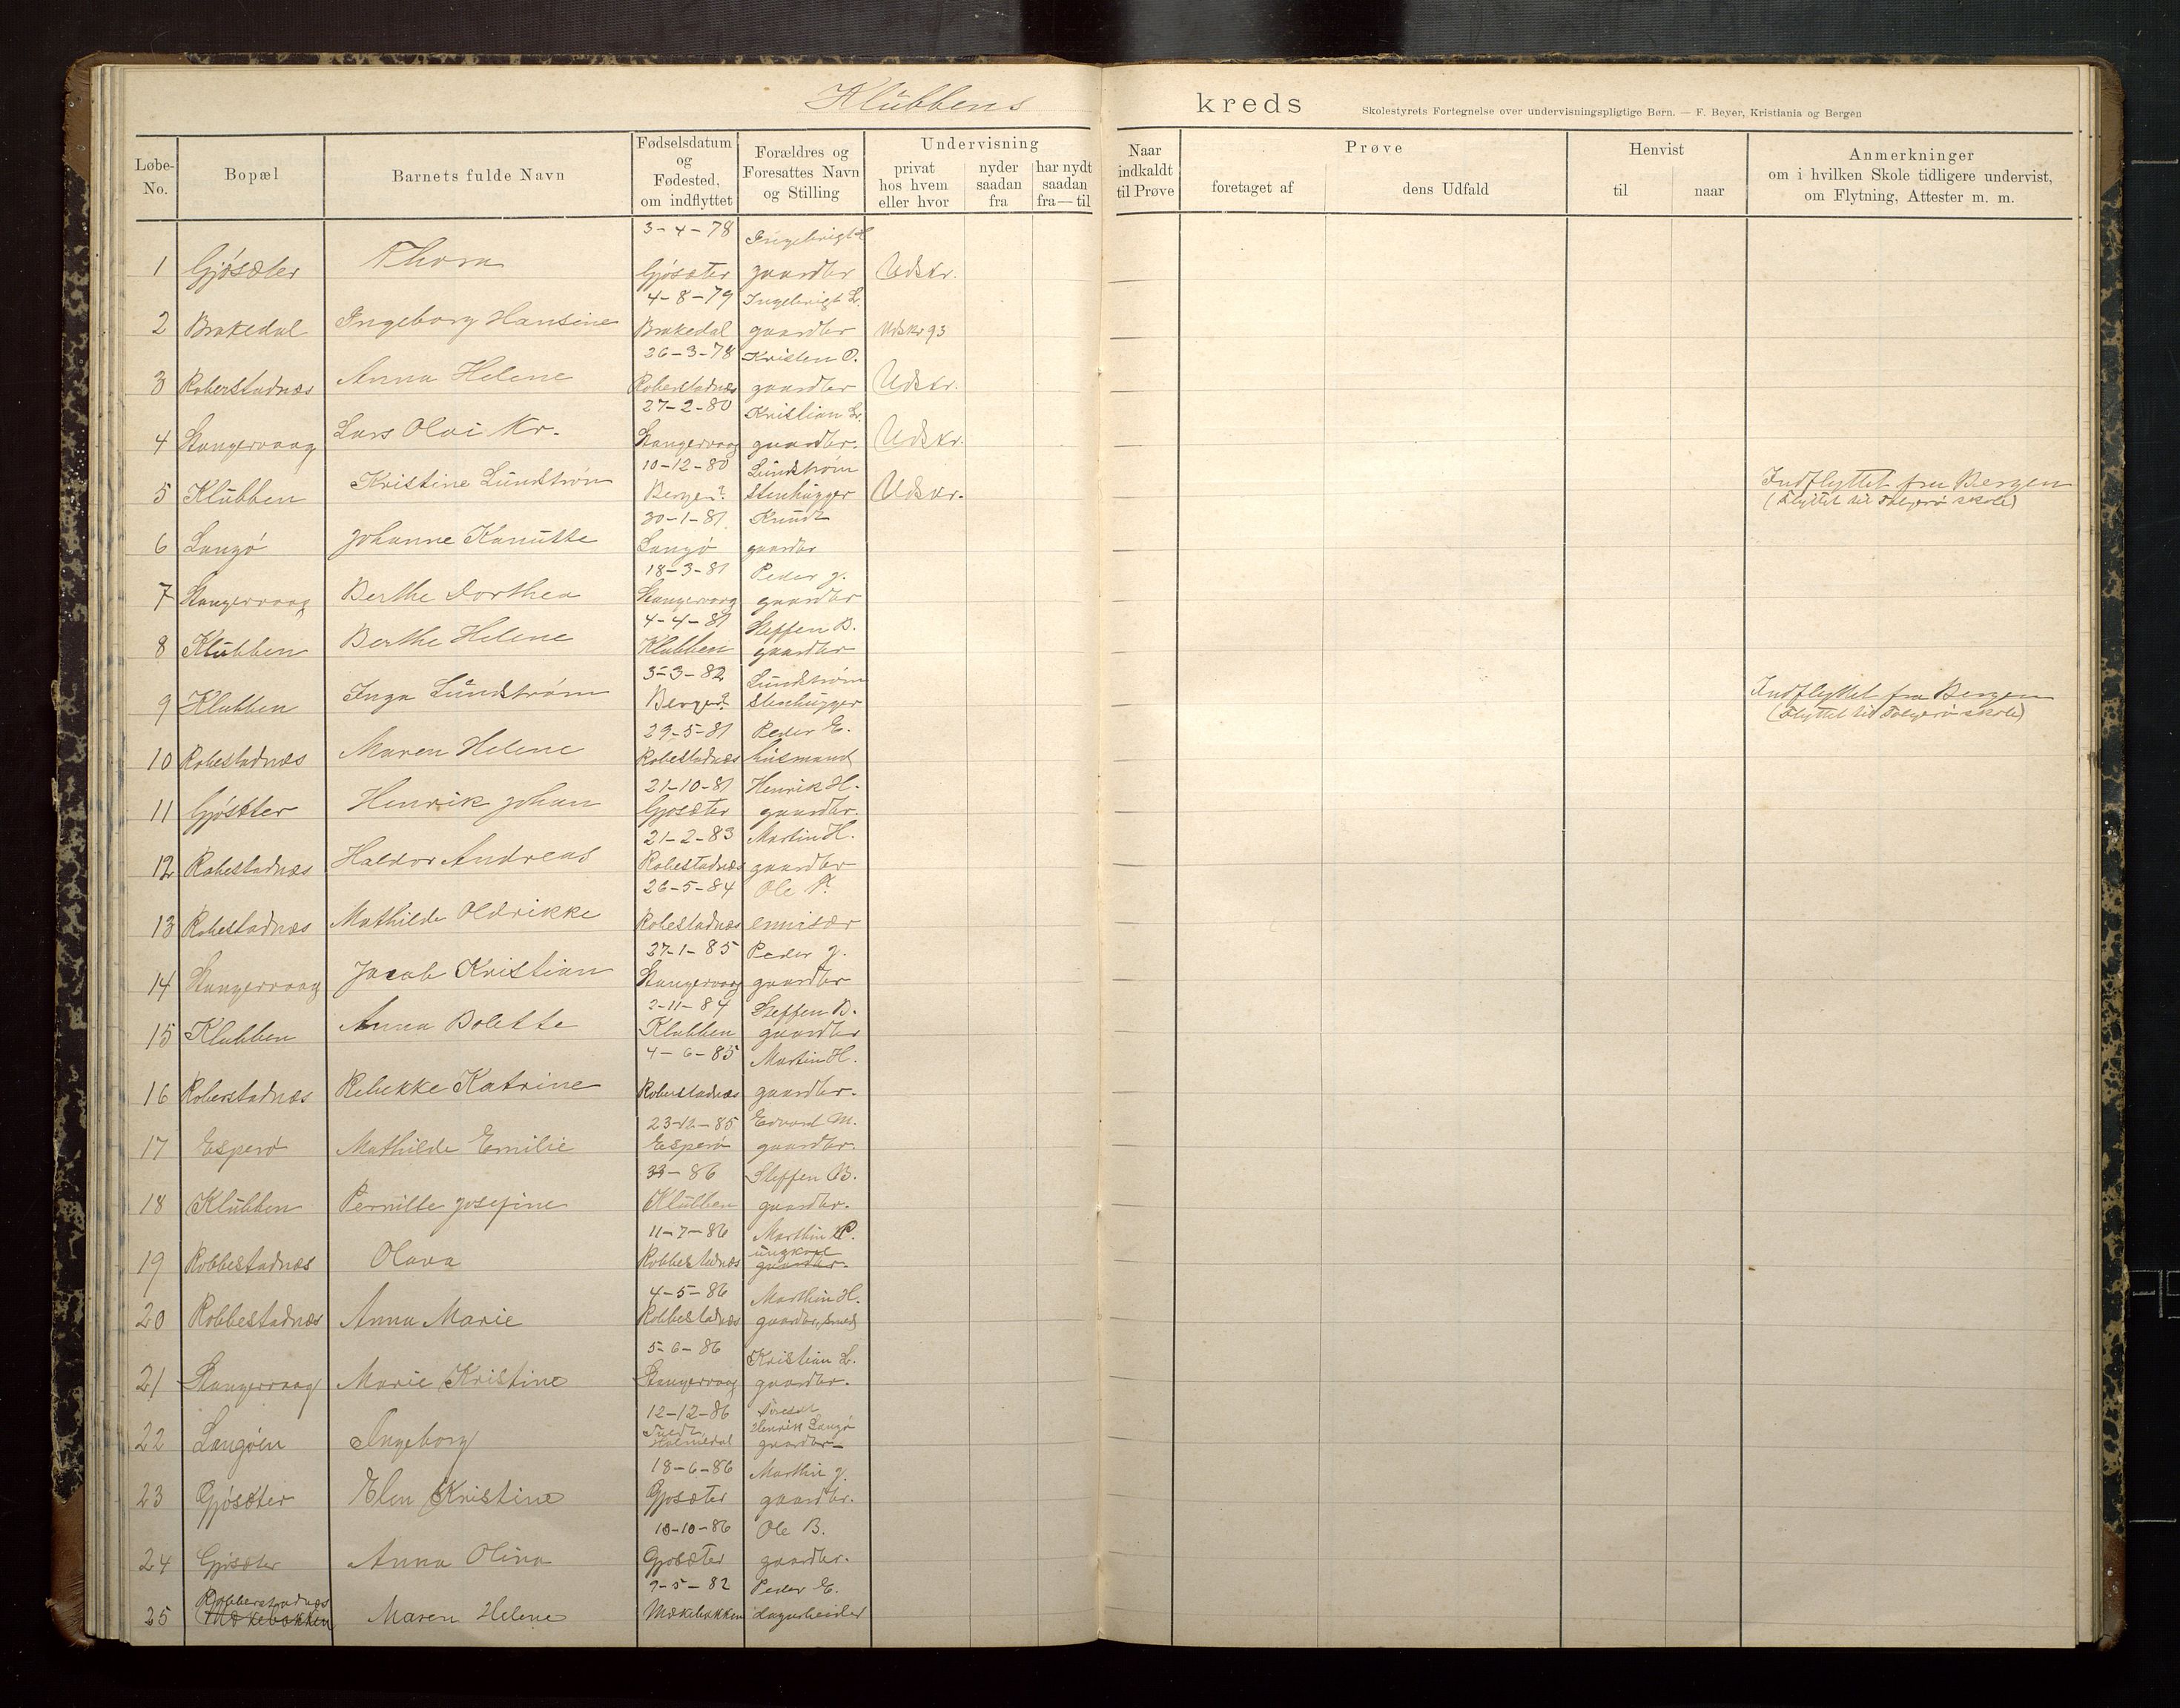 Klubbens kreds
Skolestyrets Fortegnelse over undervisningspligtige Børn. — F. Beyer, Kristiania og Bergen
Løbe-No. Bopæl Barnets fulde Navn Fødselsdatum og Fødested, om indflyttet Forældres og Foresattes Navn og Stilling Undervisning privat hos hvem eller hvor nyder saadan fra har nydt saadan fra—til Naar indkaldt til Prøve Prøve foretaget af dens Udfald Henvist til naar Anmerkninger om i hvilken Skole tidligere undervist, om Flytning, Attester m. m.
3-4-78 Ingebrigt
1 Gjøsæter Thora Gjøsæter gaardbr Udskr.
4-8-79 Ingebrigt L.
2 Brakedal Ingeborg Hansine Brakedal gaardbr Udskr 93
26-3-78 Kristen O.
3 Roberstadnæs Anna Helene Roberstadnæs gaardbr Udskr.
27-2-80 Kristian L.
4 Stangervaag Lars Olai Kr. Stangervaag gaardbr. Udskr.
10-12-80 Lundstrøm Indflyttet fra Bergen
5 Klubben Kristine Lundstrøm Bergen? Stenhugger Udskr. (Flyttet til Folgerø skole)
30-1-81 Knudt
6 Langø Johanne Kanutte Langø gaardbr
18-3-81 Peder J.
7 Stangervaag Berthe Dorthea Stangervaag gaardbr
4-4-81 Steffen B.
8 Klubben Berthe Helene Klubben gaardbr
5-3-82 Lundstrøm Indflyttet fra Bergen
9 Klubben Inga Lundstrøm Bergen? Stenhugger (Flyttet til Folgerø skole)
29-5-81 Peder E.
10 Robestadnæs Maren Helene Robestadnæs husmand
21-10-81 Henrik H.
11 Gjøsæter Henrik Johan Gjøsæter gaardbr.
21-2-83 Martin H.
12 Robestadnæs Haldor Andreas Robestadnæs gaardbr
26-5-84 Ole
13 Robestadnæs Mathilde Oldrikke Robestadnæs emisær
27-1-85 Peder J.
14 Stangervaag Jacob Kristian Stangervaag gaardbr
2-11-84 Steffen B.
15 Klubben Anna Bolette Klubben gaardbr
4-6-85 Martin H.
16 Roberstadnæs Rebekke Katrine Roberstadnæs gaardbr.
23-12-85 Edvard M.
17 Esperø Mathilde Emilie Esperø gaardbr.
33-86 Steffen B.
18 Klubben Pernille Josefine Klubben gaardbr.
11-7-86 Marthin P.
19 Robbestadnæs Olava Robbestadnæs ungkarl gaardbr.
4-5-86 Marthin H.
20 Robbestadnæs Anna Marie Robbestadnæs gaardbr, smed
5-6-86 Kristian L.
21 Stangervaag Marie Kristine Stangervaag gaardbr.
12-12-86 Henrik Langø
22 Langøen Ingeborg Holmedal gaardbr
18-6-86 Marthin J.
23 Gjøsæter Elen Kristine Gjøsæter gaardbr.
10-10-86 Ole B.
24 Gjøsæter Anna Olina Gjøsæter gaardbr.
Robberstadnæs 9-5-82 Peder E.
25 Mækebakken Maren Helene Mækebakken Dagarbeider